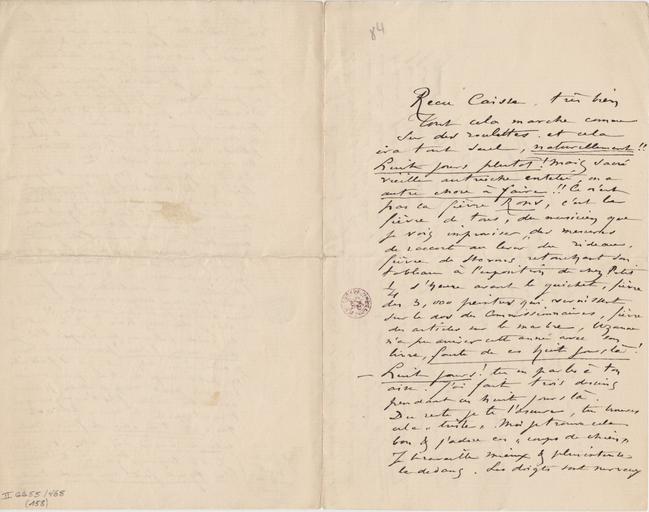 84
Recu Caisse, très bien
tout cela marche comme
sur des roulettes et cela
ira tout seul, naturellement!!
Huit jours plutôt! Mais sacré
vieille autriche entêtée, on a
autre chose à faire!! Ce n'est
pas ca fièvre Rops, c'est la
fièvre de tous, du musicien que
je vois improviser des mesures
de raccort au lever du rideau,
fièvre de Stevens retouchant son
tableau à l'exposition de chez Petit
1/4 d'heure avant le guichet, fièvre
des 3,000 peintres qui vernissent
sur le dos des Commissionnaires, fièvre
des articles sur le marbre, Uzanne
n'a pu arriver cette année avec son
livre, faute de ces huit jours là!
— Huit jours! tu en parles à ton
aise. J'ai fait trois dessins
pendant ces huit jours là.
Du reste je te l'assure, tu trouves
cela "triste". Moi je trouve cela
bon & j'adore ces "coups de chien"
Je travaille mieux &
le dedans. Les doigts sont nerveux
II 6655/468
(158)